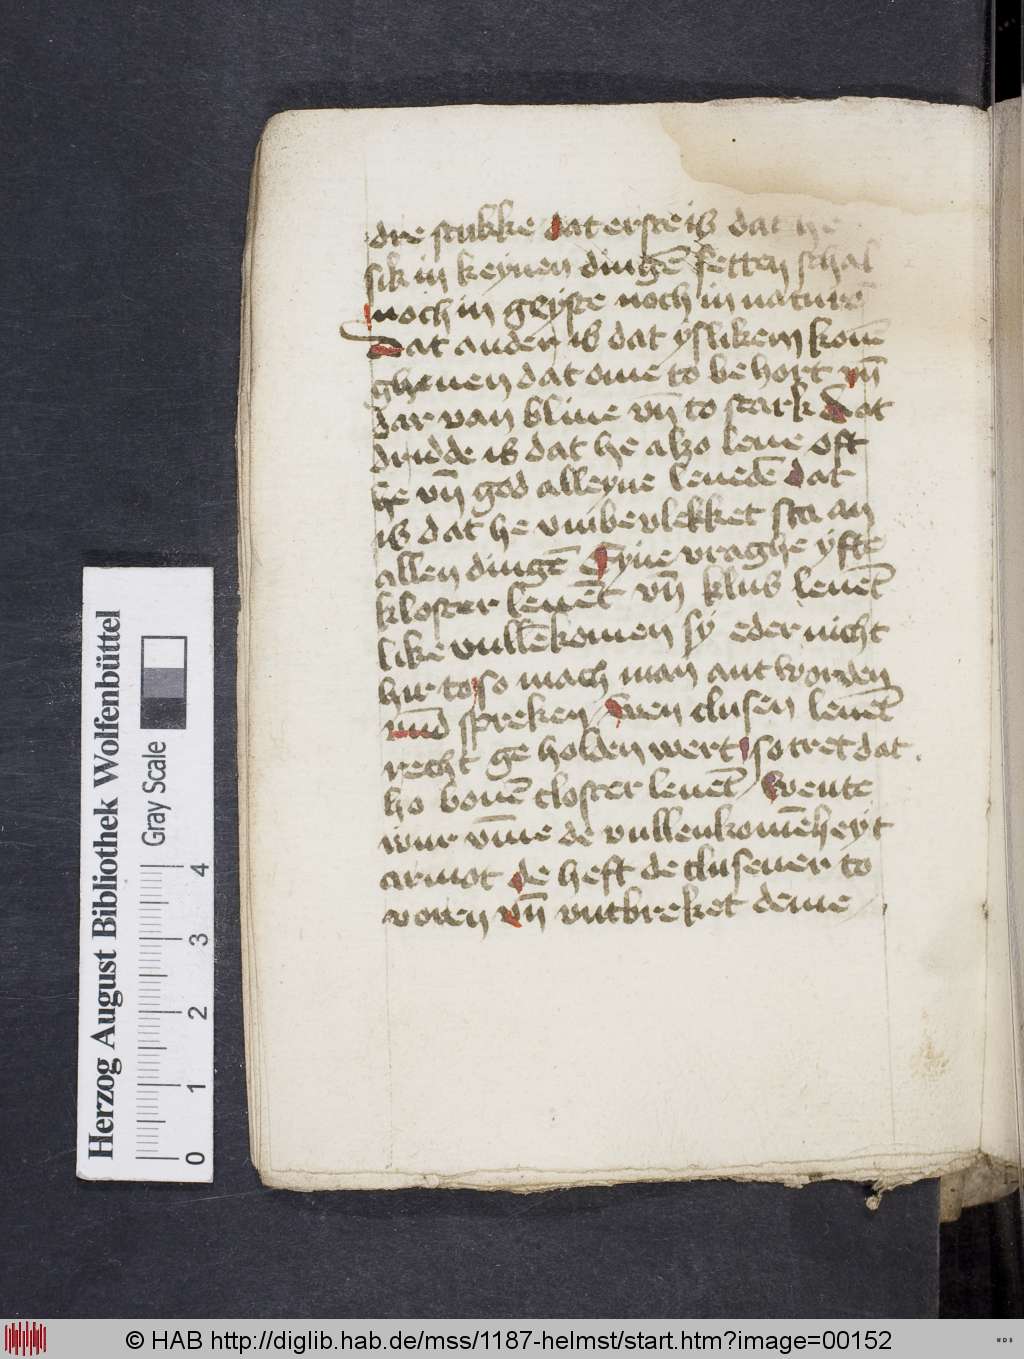 dre stukke dat erste is dat he
sik in keynen dingē setten schal
noch in geyste noch in naturē
Dat ander is dat yslikem konē
gheuen dat ome to be hort vn̄
dar van bliue vn̄ to stark Dat
drudde is dat he also leue oft
he vn̄ god alleyne leuedē dat
is dat he vmbevlekket sta an
allen dingē Eyne vraghe yfte
kloster leuēt vn̄ klus leuēt
like vullēkomen sy eder nicht
hir to so mach man antworden
vnd spreken wen clusen leuēt
recht ge holden wert so tret dat
ho bouē closter leuēt wente
wur vm̄e de vullenkomēheyt
armot de heft de clusener to
voren vn̄ vutbreket deme
Herzog August Bibliothek Wolfenbüttel
Gray Scale
0 1 2 3 4
© HAB http://diglib.hab.de/mss/1187-helmst/start.htm?image=00152